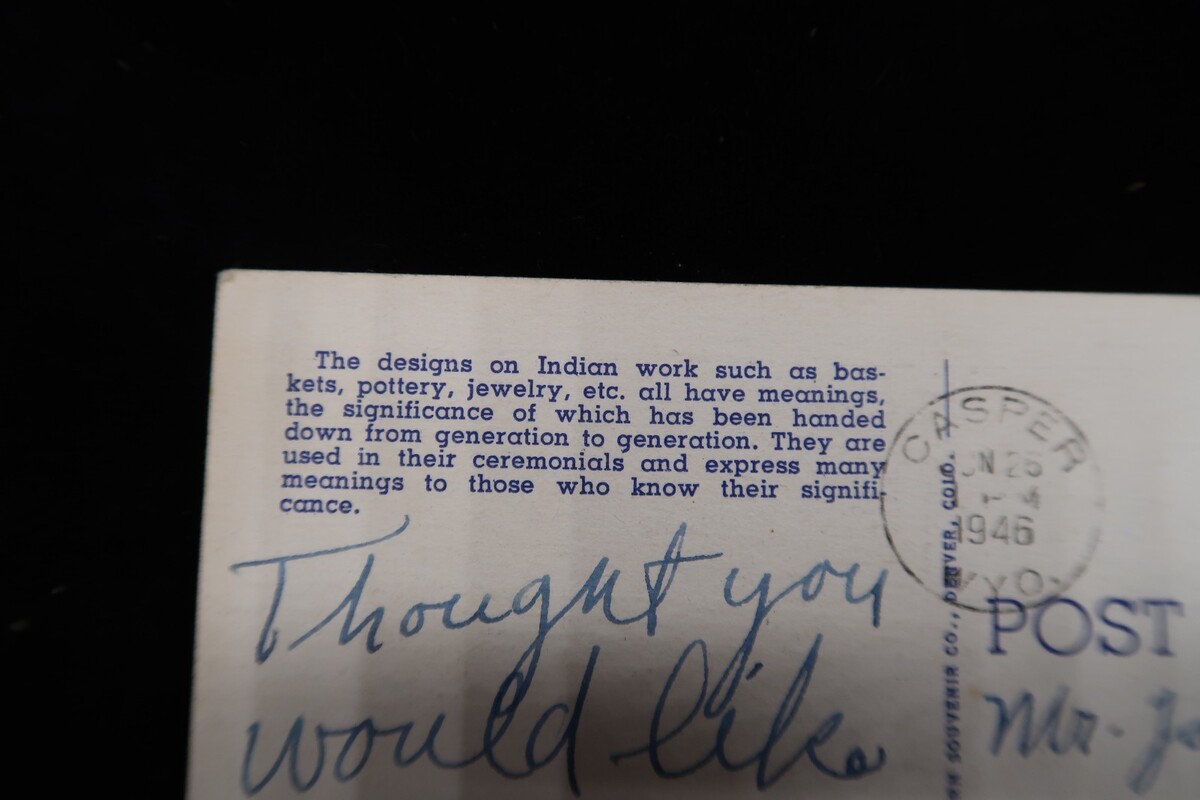 The designs on Indian work such as bas-
kets, pottery, jewelry, etc. all have meanings,
the significance of which has been handed
down from generation to generation. They are
used in their ceremonials and express many
meanings to those who know their signifi-
cance.
Thought you
would like
CASPER
26
1946
WYO.
SOUVENIR CO., DENVER, COLO.
POST
Mr.